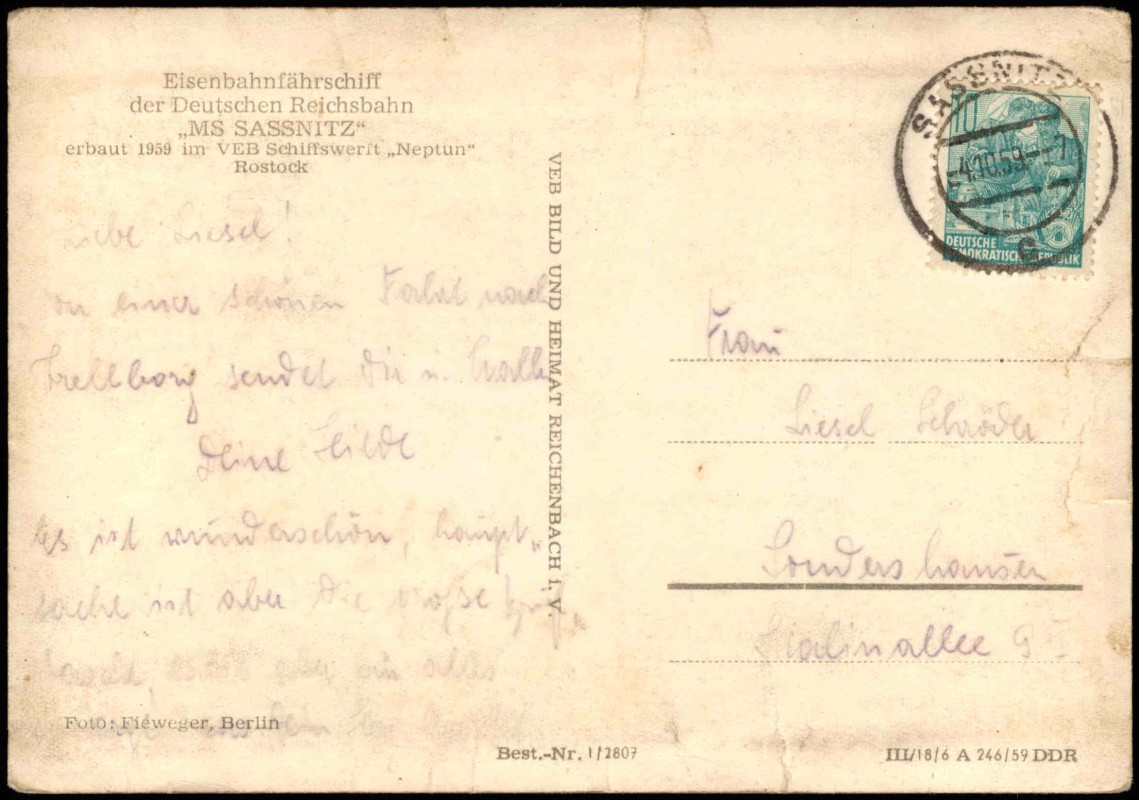 Eisenbahnfährschiff
der Deutschen Reichsbahn
„MS SASSNITZ“
erbaut 1959 im VEB Schiffswerft „Neptun“
Rostock
Liebe Liesel!
einer schönen Fahrt nach
Trelleborg sendet Dir u.
Deine Hilde
Es ist wunderschön, haupt„
sache ist aber die große
Foto: Fieweger, Berlin
VEB BILD UND HEIMAT REICHENBACH i. V.
Best.-Nr. 1/2807
SASSNITZ
4.10.59
c
10
DEUTSCHE
DEMOKRATISCHE REPUBLIK
Frau
Liesel Schröder
Sondershausen
Stalinallee 9
III/18/6 A 246/59 DDR